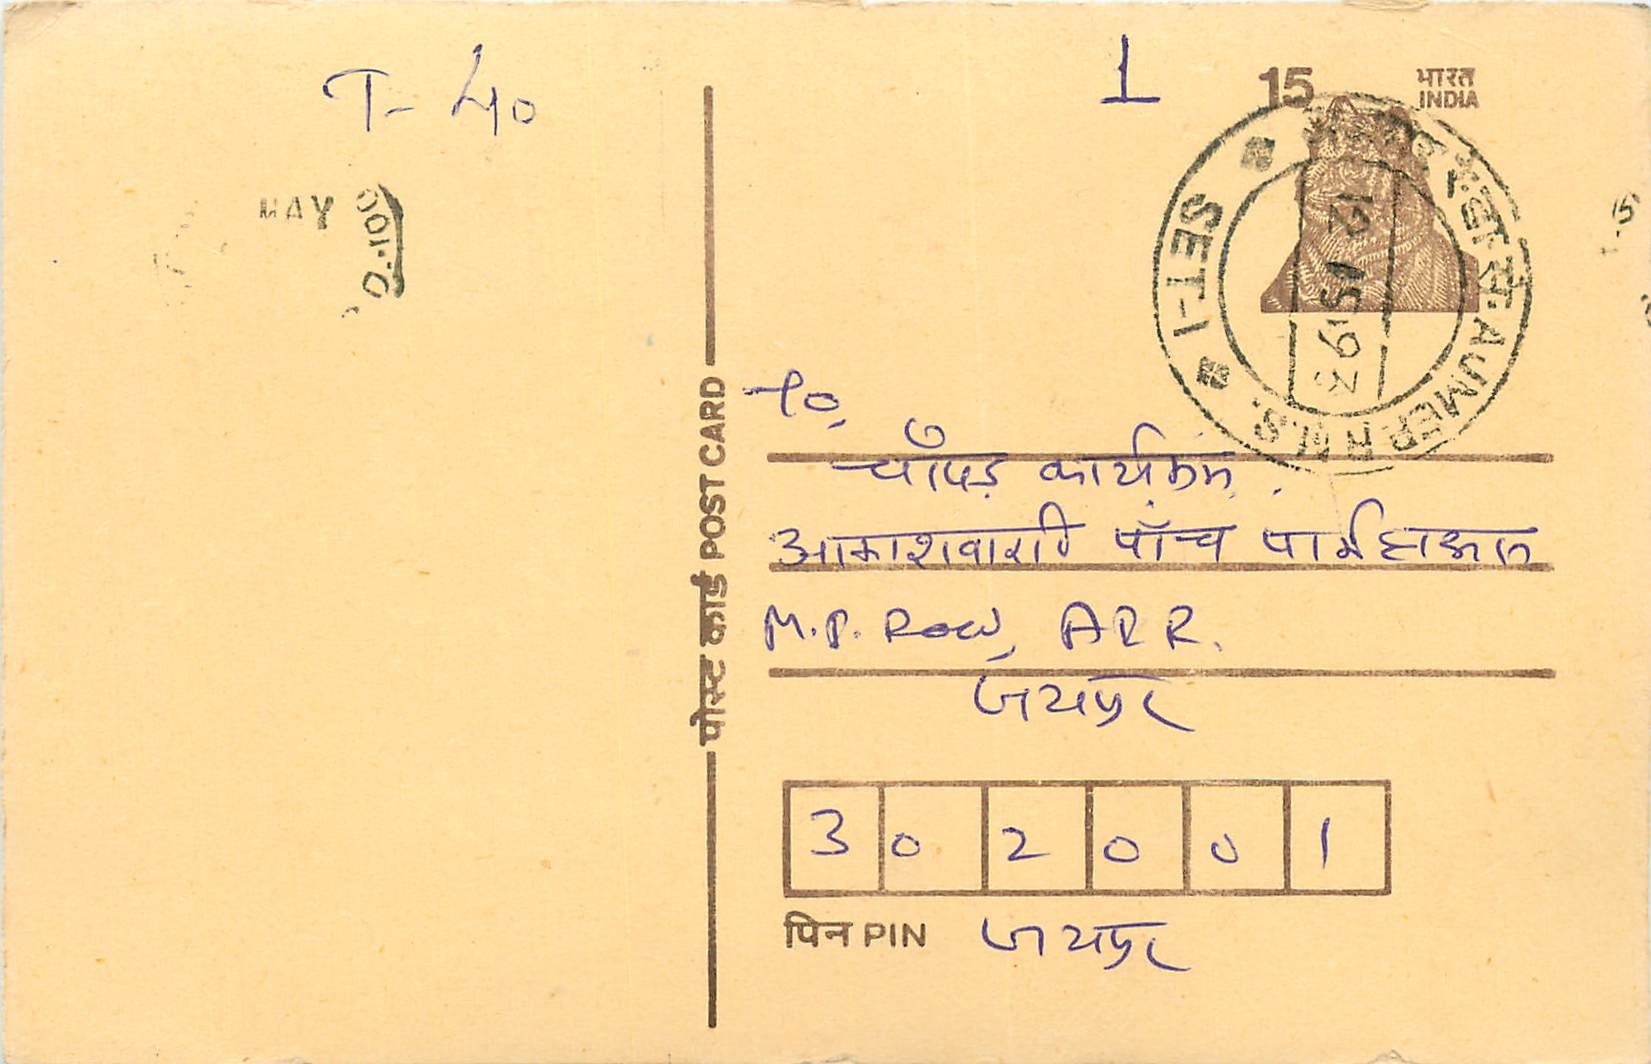 T- 40
1
15
भारत
INDIA
MAY
SET-1
AJMER R.M.S.
12 5 93
पोस्ट कार्ड POST CARD
To,
चौपड़ कार्यक्रम
आकाशवाणी पाँच
M.P. Row, ADR.
जयपुर
3 0 2 0 0 1
पिन PIN
जयपुर